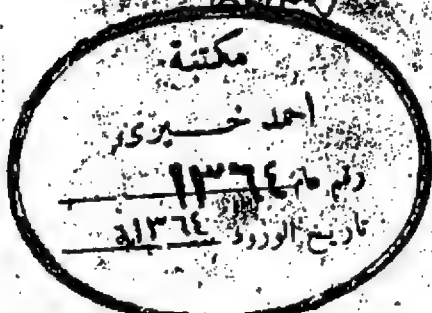 مكتبة
أحمد خيري
رقم عام ١٣٦٤
تاريخ الورود ١٣٦٤